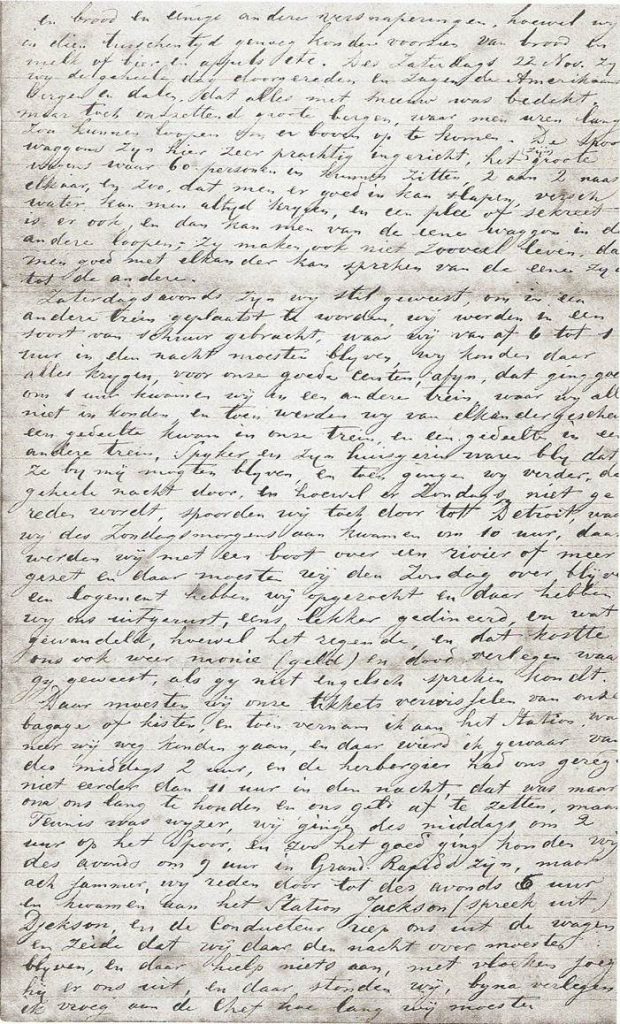 en brood en eenige andere versnaperingen, hoewel wy
in dien tusschentyd genoeg konden voorzien van brood en
melk of bier en appels etc. Des Zaterdags 22 Nov. zy
wy del geheele dag doorgereden en zagen de Amerikaans
bergen en dalen, dat alles met sneeuw was bedekt,
maar toch ontzettend groote bergen, waar men uren lang
zou kunnen loopen om er boven op te komen. De spoor
waggons zyn hier zeer prachtig ingericht, het zyn groote
waar 60 personen in kunnen zitten 2 aan 2 naas
elkaar, en zoo, dat men er goed in kan slapen, versch
water kan men altyd krygen, en een plee of sekreet
is er ook, en dan kan men van de eene waggon in de
andere loopen; zy maken ook niet zooveel leven, da
men goed met elkander kan spreken van de eene zy
tot de andere.
Zaterdagsavonds zyn wy stil geweest, om in een
andere trein geplaatst te worden, wij werden in een
soort van schuur gebracht, waar wij van af 6 tot 1
uur in den nacht moesten blyven, wy konden daar
alles krygen, voor onze goede centen, afyn, dat ging goe
om 1 uur kwamen wij in een andere trein, waar wy all
niet in konden en toen werden wy van elkander geschei
een gedeelte kwam in onze trein, en een gedeelte in een
andere trein, Spyker en zyn huisgezin waren bly dat
ze by my mogten blyven, en toen gingen wy verder, de
geheele nacht door, en hoewel er Zondags niet ge
reden wordt, spoorden wij toch door tot Detroit, waa
wij des Zondagsmorgens aan kwamen om 10 uur, daar
werden wij met een boot over een rivier of meer
gezet en daar moesten wij den Zondag over blyve
een logement hebben wij opgezocht en daar hebben
wy ons uitgerust, eens lekker gedineerd, en wat
gewandeld, hoewel het regende, en dat kostte
ons ook weer monie (geld) en dood verlegen waar
gy geweest, als gy niet engelsch spreken kondt.
Daar moesten wij onze tikkets verwisselen van onze
bagage of kisten, en toen vernam ik aan het Station, wa
neer wij weg konden gaan, en daar werd ik gewaar van
des middags 2 uur, en de herbergier had ons gezeg
niet eerder dan 11 uur in den nacht, dat was maar
om ons lang te houden en ons geld af te zetten, maar
Teunis was wyzer, wij ginge des middags om 2
uur op het Spoor, en zoo het goed ging konden wij
des avonds om 9 uur in Grand Rapids zyn, maar
ach jammer, wy reden door tot des avonds 6 uur
en kwamen aan het Station Jackson (spreek uit)
Djekson, en de Conducteur riep ons uit de wagen
en zeide dat wij daar den nacht over moesten
blyven, en daar hielp niets aan, met vloeken joeg
hy er ons uit, en daar stonden wij, byna verlegen
ik vroeg aan de Chef hoe lang wij moesten